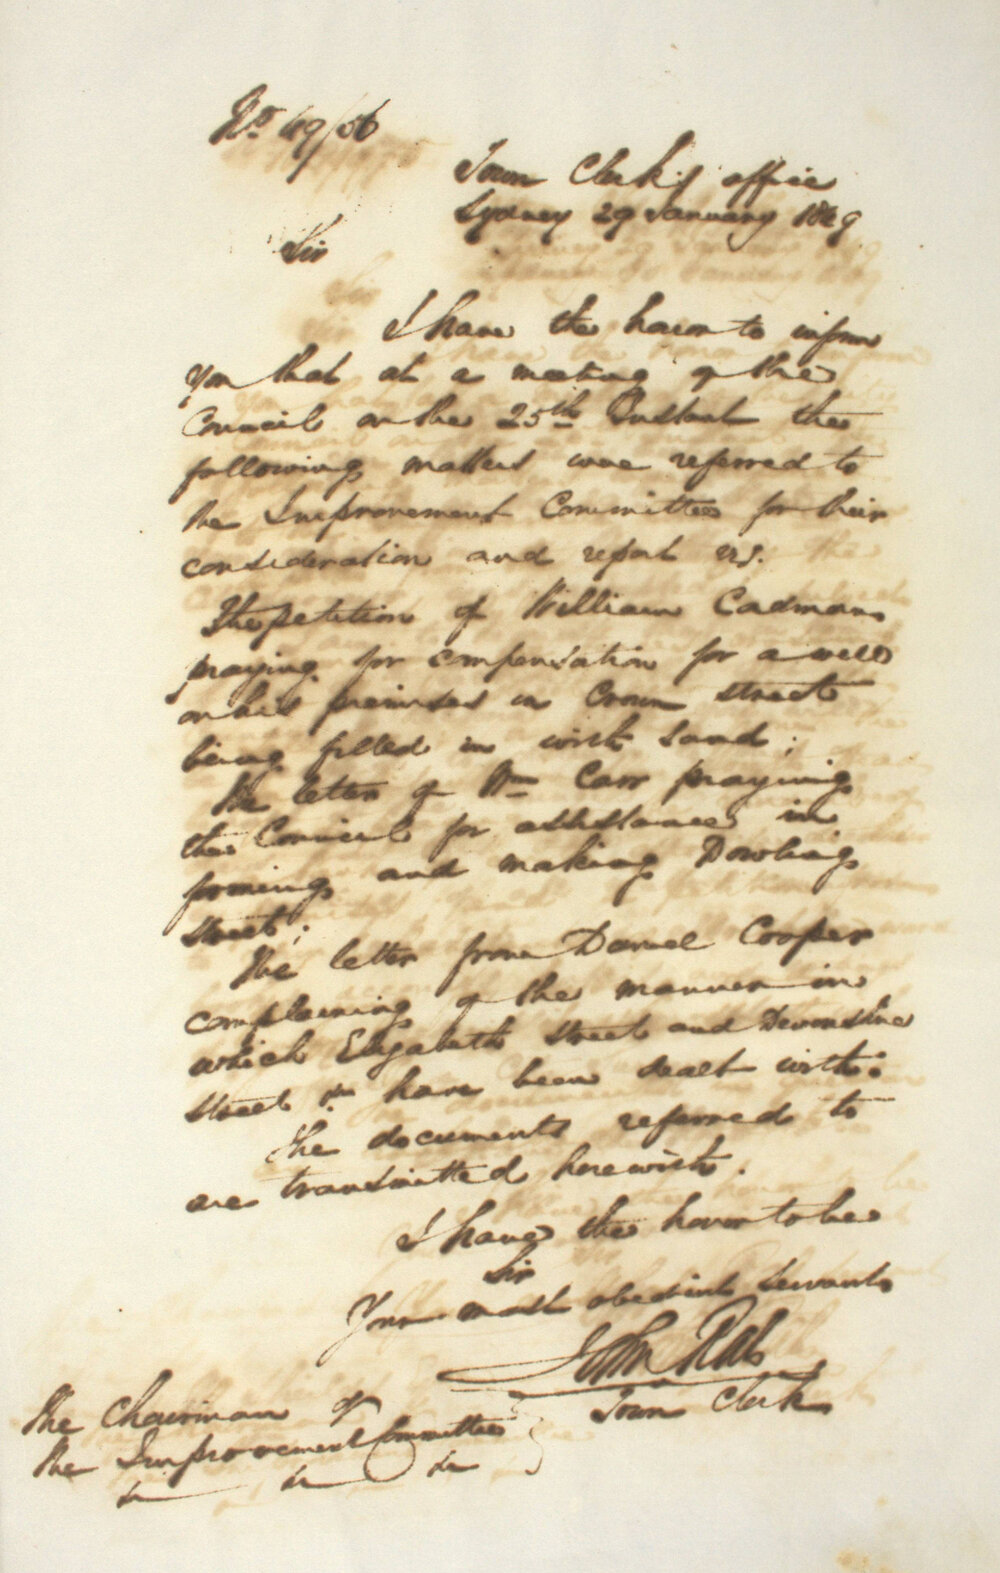 No. 49/56
Town Clerk's office
Sydney 29 January 1849
Sir
I have the honor to inform
you that at a meeting of the
Council on the 25th Instant the
following matters were referred to
the Improvement Committee for their
consideration and report viz.
The petition of William Cadman
praying for compensation for a well
on his premises in Crown street
being filled in with sand;
The letter of Wm Carr praying
the Council for assistance in
forming and making Dowling
street;
The letter from Daniel Cooper
complaining of the manner in
which Elizabeth Street and Devonshire
Street &c have been dealt with:
The documents referred to
are transmitted herewith.
I have the honor to be
Sir
Your most obedient Servant
John Rae
Town Clerk
The Chairman of
the Improvement Committee
&c &c &c